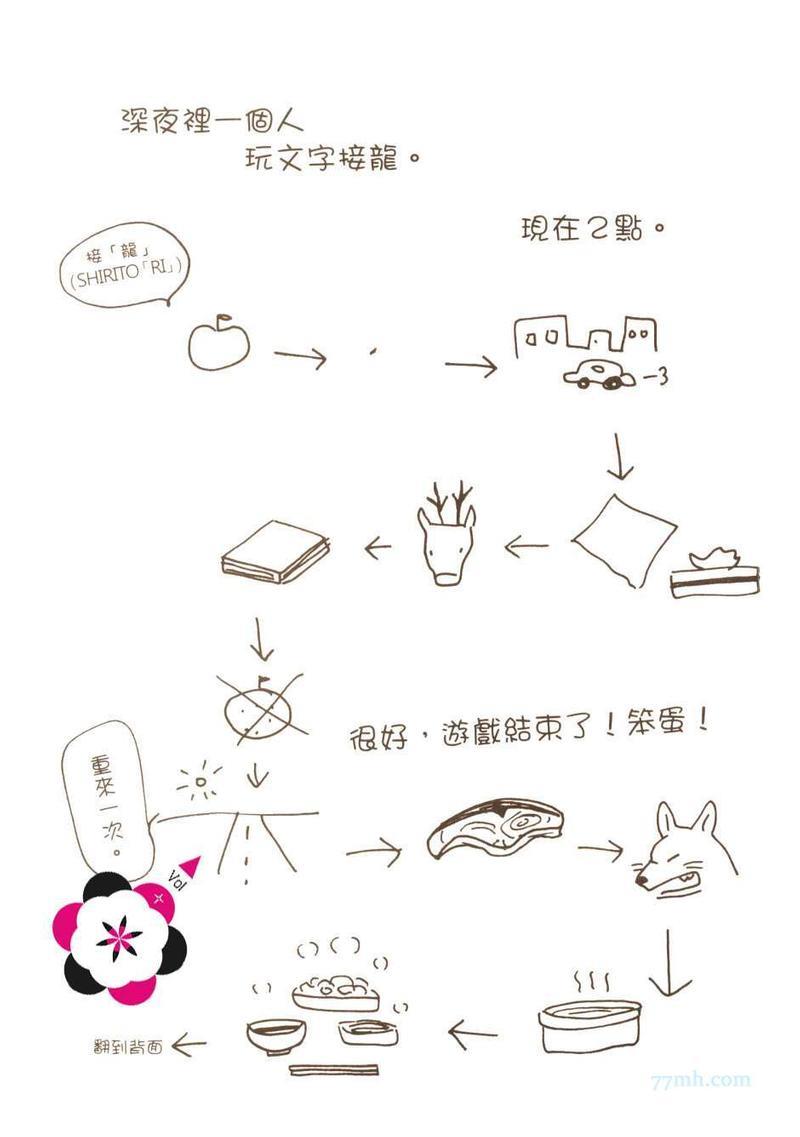 深夜裡一個人
玩文字接龍。
現在2點。
接「龍」
(SHIRITO「RI」)
很好，遊戲結束了！笨蛋！
重來一次。
Vol
翻到背面
77mh.com